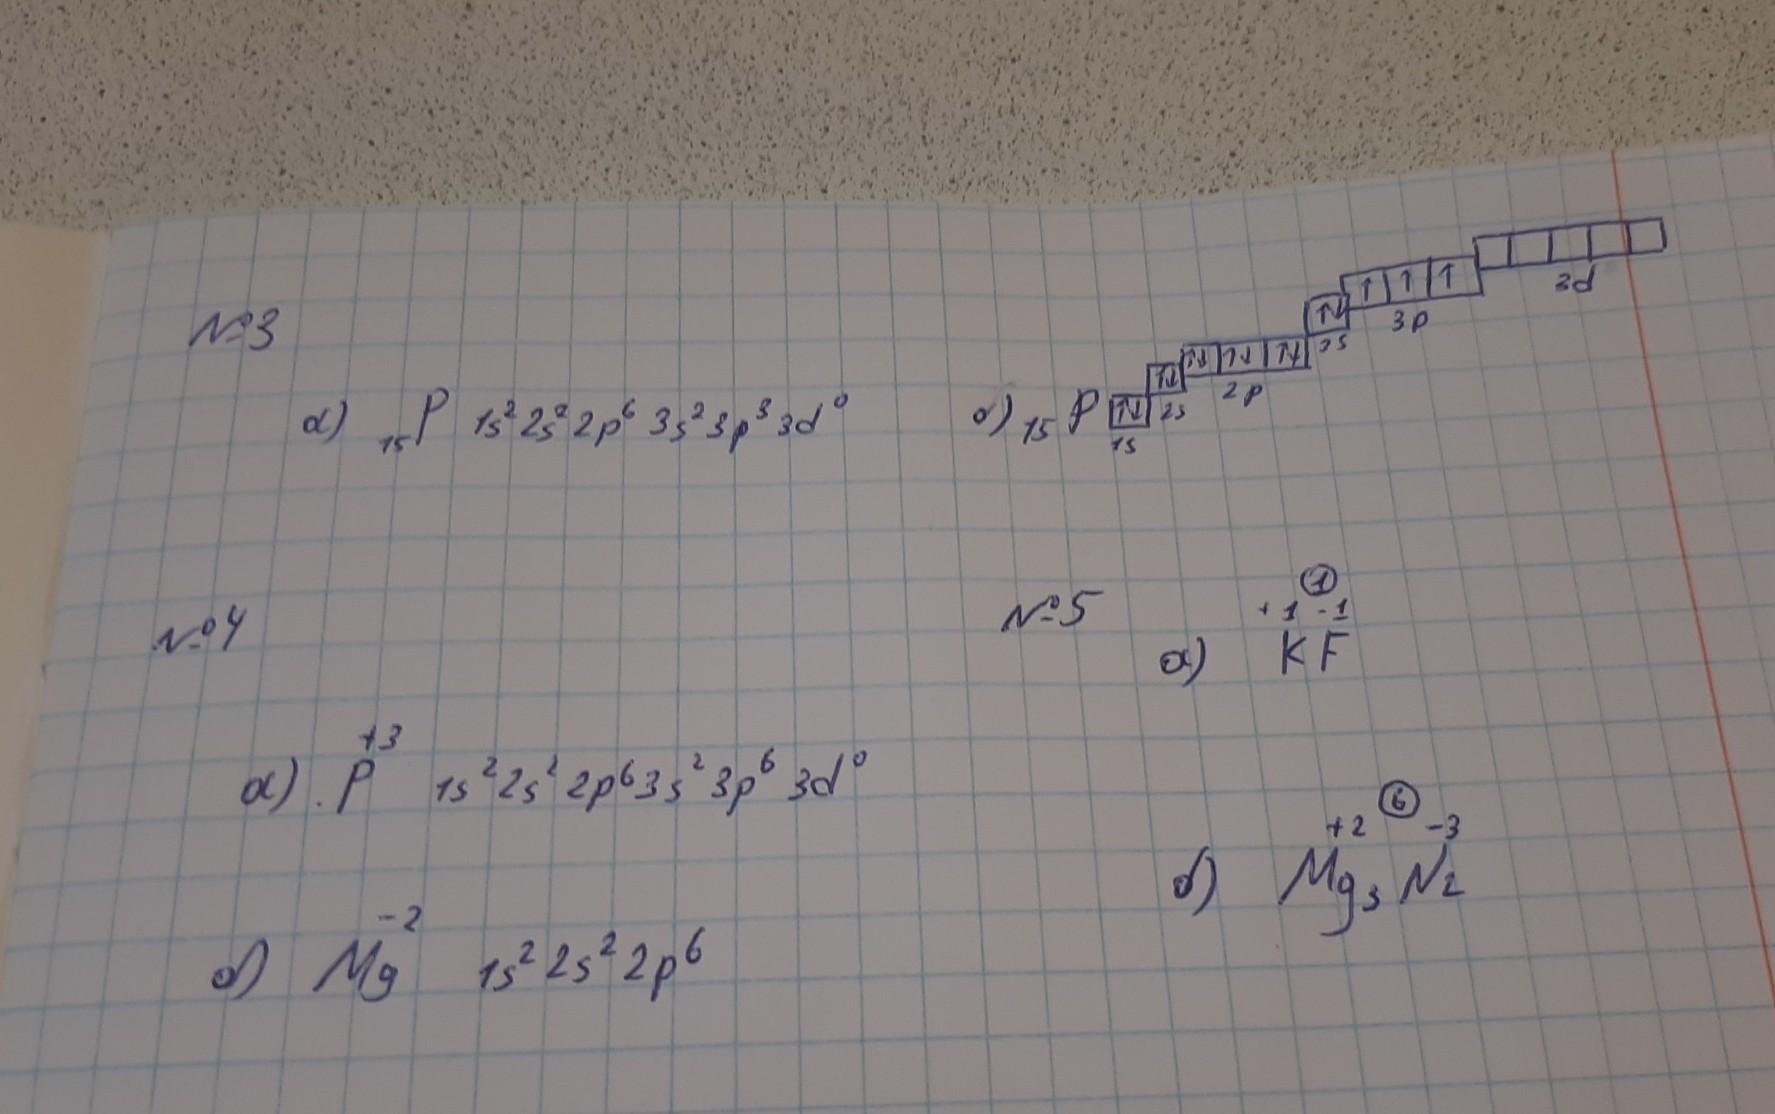 №3
а) ₁₅P 1s² 2s² 2p⁶ 3s² 3p³ 3d⁰
б) ₁₅P ↑↓ ↑↓ ↑↓ ↑↓ ↑↓ ↑↓ ↑ ↑ ↑
1s 2s 2p 3s 3p 3d
№4
а) P⁺³ 1s² 2s² 2p⁶ 3s² 3p⁶ 3d⁰
б) Mg⁻² 1s² 2s² 2p⁶
№5
①
+1 -1
а) KF
⑥
+2 -3
б) Mg₃N₂